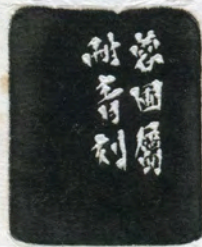 蓉圃屬
耐青刻